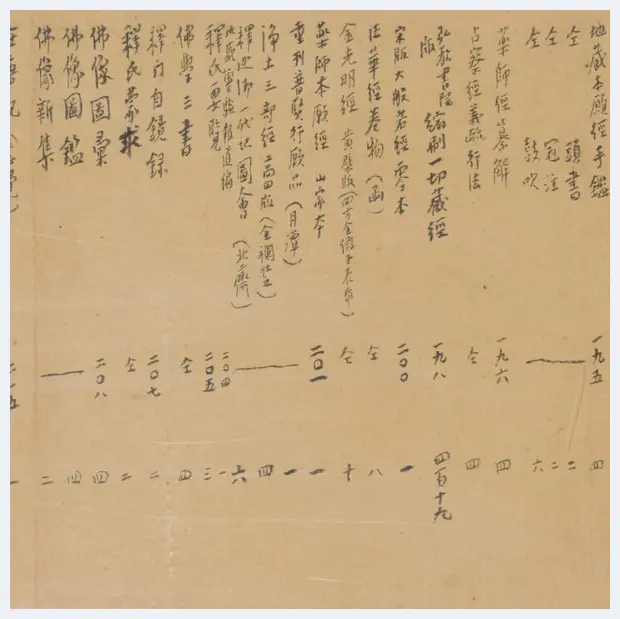 地藏本願經手鑑 一九五 四
仝 頭書 二
仝 冠注 二
仝 鼓吹 六
藥師經纂解 一九六 四
占察經義疏行法 仝 四
弘教書院版 縮刷一切藏經 一九八 四百十九
宋版大般若經零本 二〇〇 一
法華經卷物（函） 仝 八
金光明經 黄檗版（四方金 仝 十
藥師本願經 山家本 二〇一 一
重刊普賢行願品（月潭） 一
淨土三部經 高田版（金襴仕立） 四
釋迦御一代記圖會（北斎） 六
靈驗 二〇四 一
釋氏要覽 二〇五 三
佛學三書 仝 四
釋門自鏡録 二〇七 二
釋氏蒙求 仝 二
佛像圖彙 二〇八 四
佛像圖鑑 四
佛像新集 二